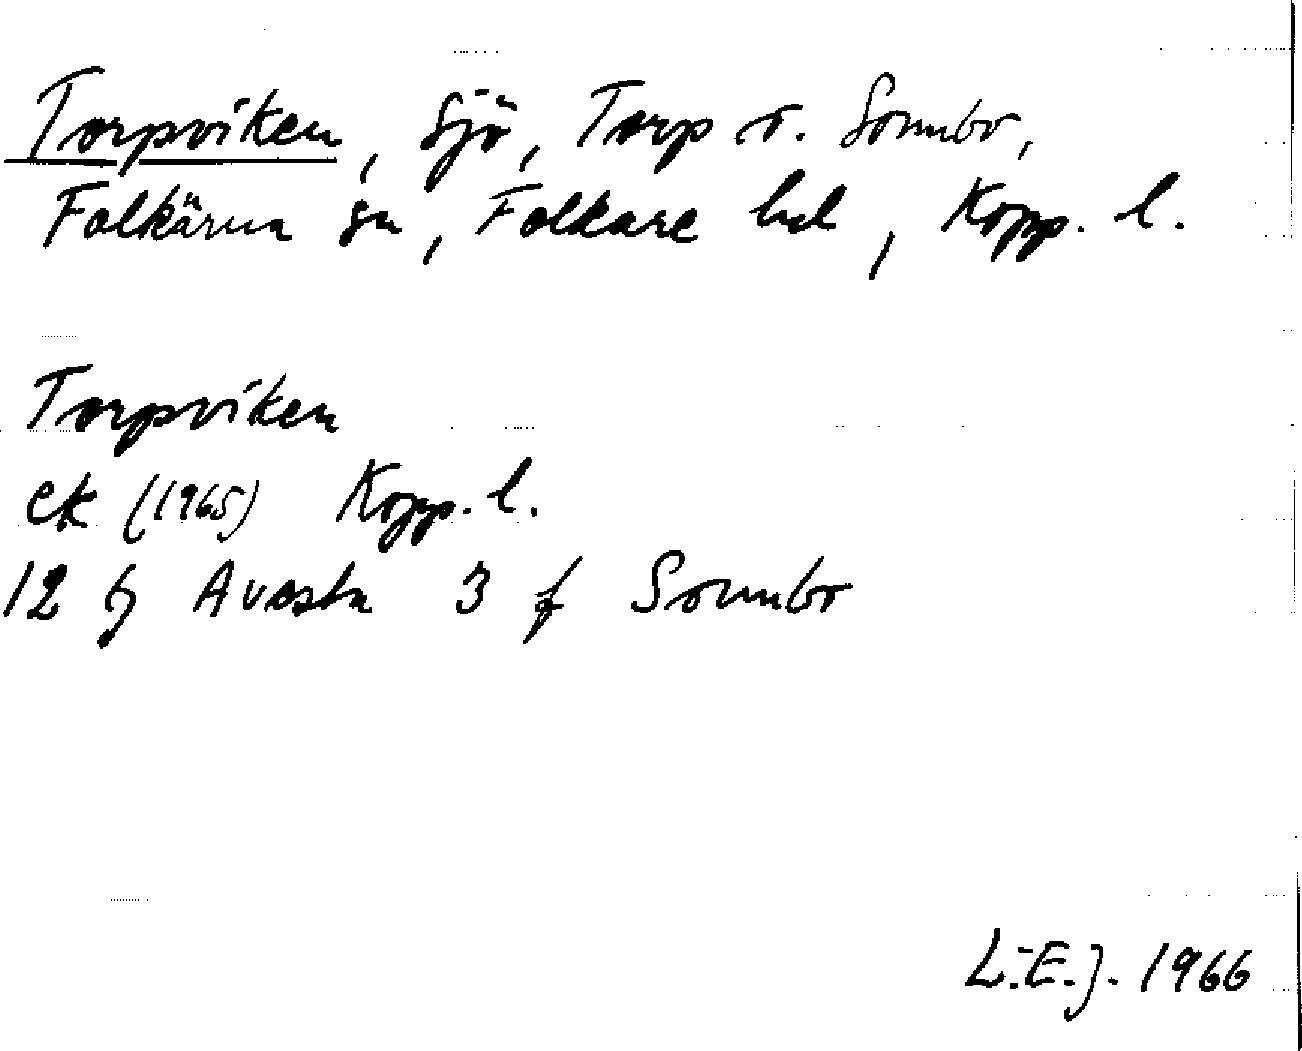 Torpviken, sjö, Torp o. Sonnbo,
Folkärna sn, Folkare hd, Kopp. l.
Torpviken
ek (1965) Kopp. l.
12 G Avesta 3 f Sonnbo
L.-E.J. 1966